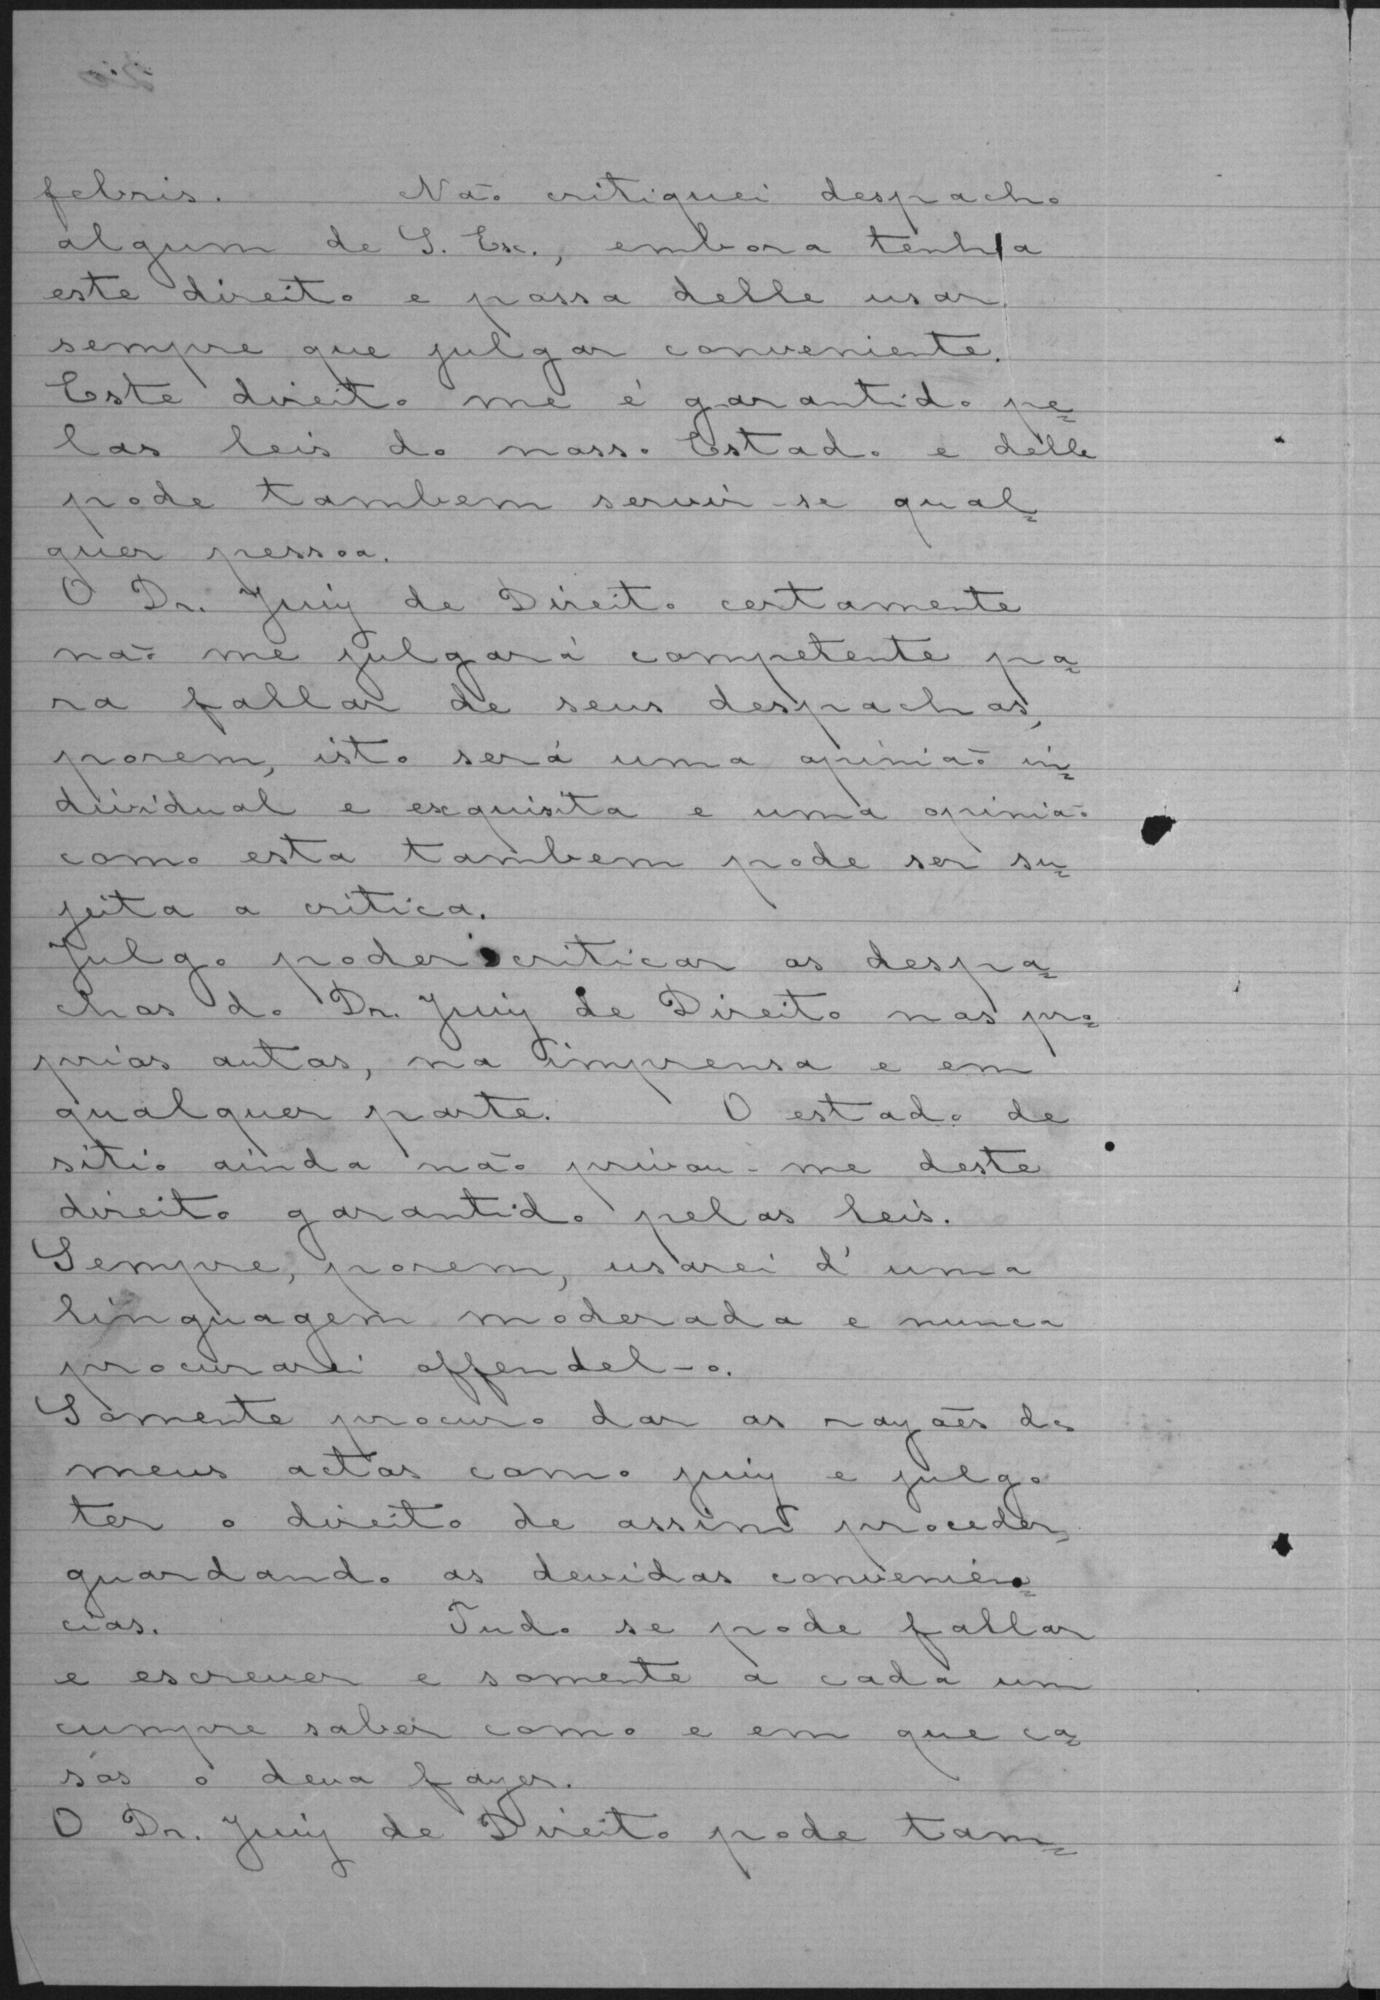 febris. Não critiquei despacho
algum de S. Ex., embora tenha
este direito e possa delle usar
sempre que julgar conveniente.
Este direito me é garantido pe=
las leis do nosso Estado e delle
pode tambem servir-se qual=
quer pessoa.
O Dr. Juiz de Direito certamente
não me julgará competente pa=
ra fallar de seus despachos,
porem, isto será uma opinião in=
dividual e exquisita e uma opinião
como esta tambem pode ser su=
jeita a critica.
Julgo poder criticar os despa=
chos do Dr. Juiz de Direito nos pro=
prios autos, na imprensa e em
qualquer parte. O estado de
sitio ainda não privou-me deste
direito garantido pelas leis.
Sempre, porem, usarei d'uma
linguagem moderada e nunca
procurarei offendel-o.
Somente procuro dar as razões dos
meus actos como juiz e julgo
ter o direito de assim proceder,
guardando as devidas convenien=
cias. Tudo se pode fallar
e escrever e somente a cada um
cumpre saber como e em que ca=
sos o deva fazer.
O Dr. Juiz de Direito pode tam=